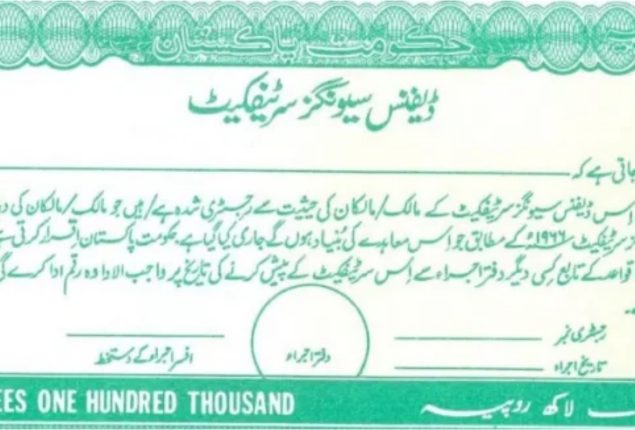 حکومت پاکستان
ڈیفنس سیونگز سرٹیفکیٹ
جاتی ہے کہ
اِس ڈیفنس سیونگز سرٹیفکیٹ کے مالک/مالکان کی حیثیت سے رجسٹری شدہ ہے/ہیں جو مالک/مالکان کی
سرٹیفکیٹ ۱۹۶۶ء کے مطابق جو اِس معاہدے کی بُنیاد ہوں گے جاری کیا گیا ہے حکومت پاکستان اقرار کرتی ہے
قواعد کے تابع کسی دیگر دفتر اجراء سے اِس سرٹیفکیٹ کے پیش کرنے کی تاریخ پر واجب الادا وہ رقم ادا کرے گی
رجسٹری نمبر
تاریخ اجراء
دفتر اجراء
افسر اجراء کے دستخط
EES ONE HUNDRED THOUSAND
لاکھ روپیہ